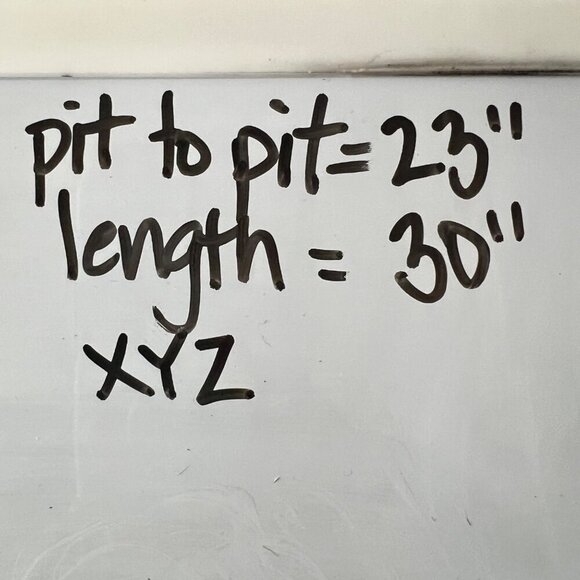 pit to pit = 23"
length = 30"
XYZ